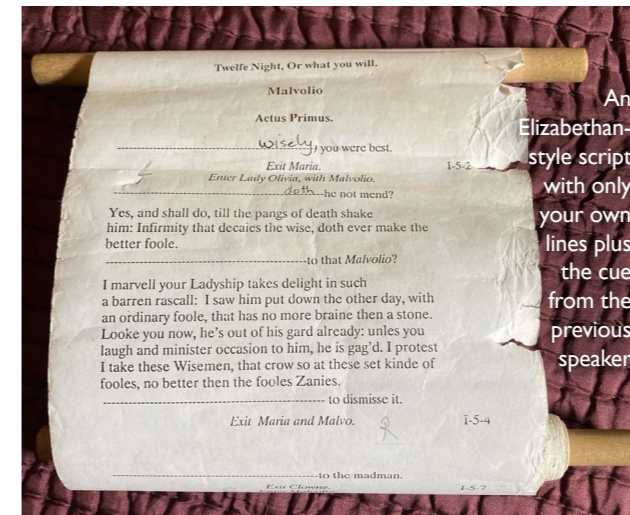 Twelfe Night, Or what you will.
Malvolio
Actus Primus.
wisely, you were best.
Exit Maria. 1-5-2
Enter Lady Olivia, with Malvolio.
doth he not mend?
Yes, and shall do, till the pangs of death shake
him: Infirmity that decaies the wise, doth ever make the
better foole.
to that Malvolio?
I marvell your Ladyship takes delight in such
a barren rascall: I saw him put down the other day, with
an ordinary foole, that has no more braine then a stone.
Looke you now, he's out of his gard already: unles you
laugh and minister occasion to him, he is gag'd. I protest
I take these Wisemen, that crow so at these set kinde of
fooles, no better then the fooles Zanies.
to dismisse it.
Exit Maria and Malvo. R 1-5-4
to the madman.
Exit Clowne. 1-5-7
An
Elizabethan-
style script
with only
your own
lines plus
the cue
from the
previous
speaker